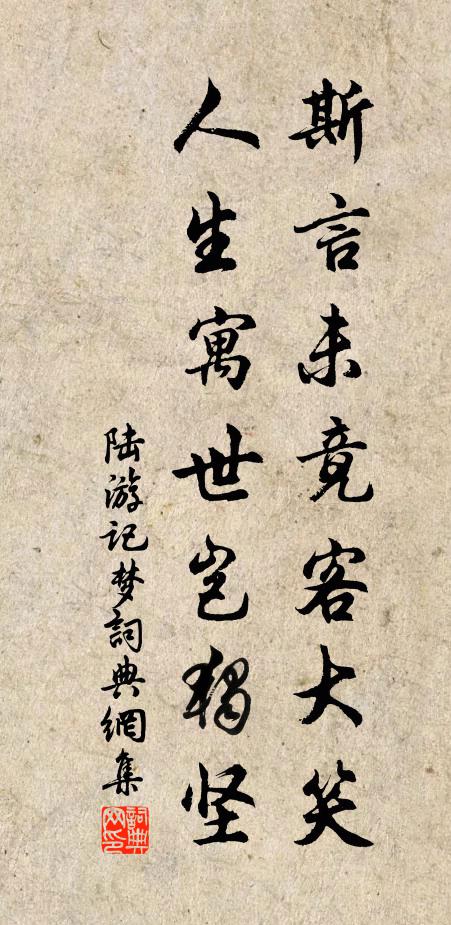 斯言未竟客大笑
人生寓世岂独坚
陆游记梦詞典網集
詞典网印